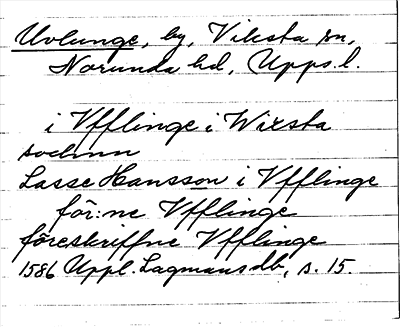 Uvlunge, by, Viksta sn,
Norunda hd, Upps. l.
i Yfflinge i Wixsta
sochnn
Lasse Hansson i Yfflinge
för:ne Yfflinge
föreskriffne Yfflinge
1586 Uppl. Lagmansdb, s. 15.